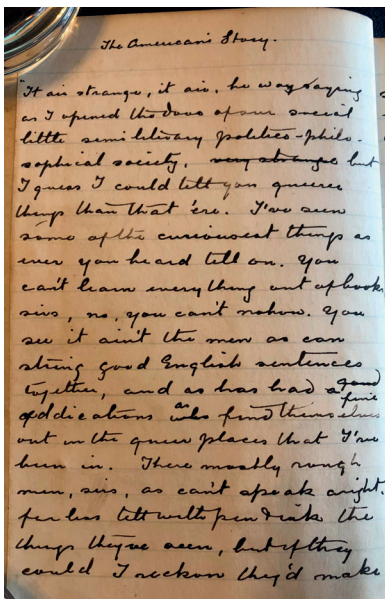 The American's Story.
"It air strange, it air, he was saying
as I opened the door of our social
little semi literary politico-philo-
sophical society, very strange but
I guess I could tell you queerer
things than that 'ere. I've seen
some of the curiousest things as
ever you heard tell on. You
can't learn everything out of books
sirs, no, you can't nohow. You
see it ain't the men as can
string good English sentences
together, and as has had a good
fine
eddications as who find themselves
out in the queer places that I've
been in. There mostly rough
men, sirs, as can't speak aright.
far less tell with pen & ink the
things they've seen, but if they
could I reckon they'd make